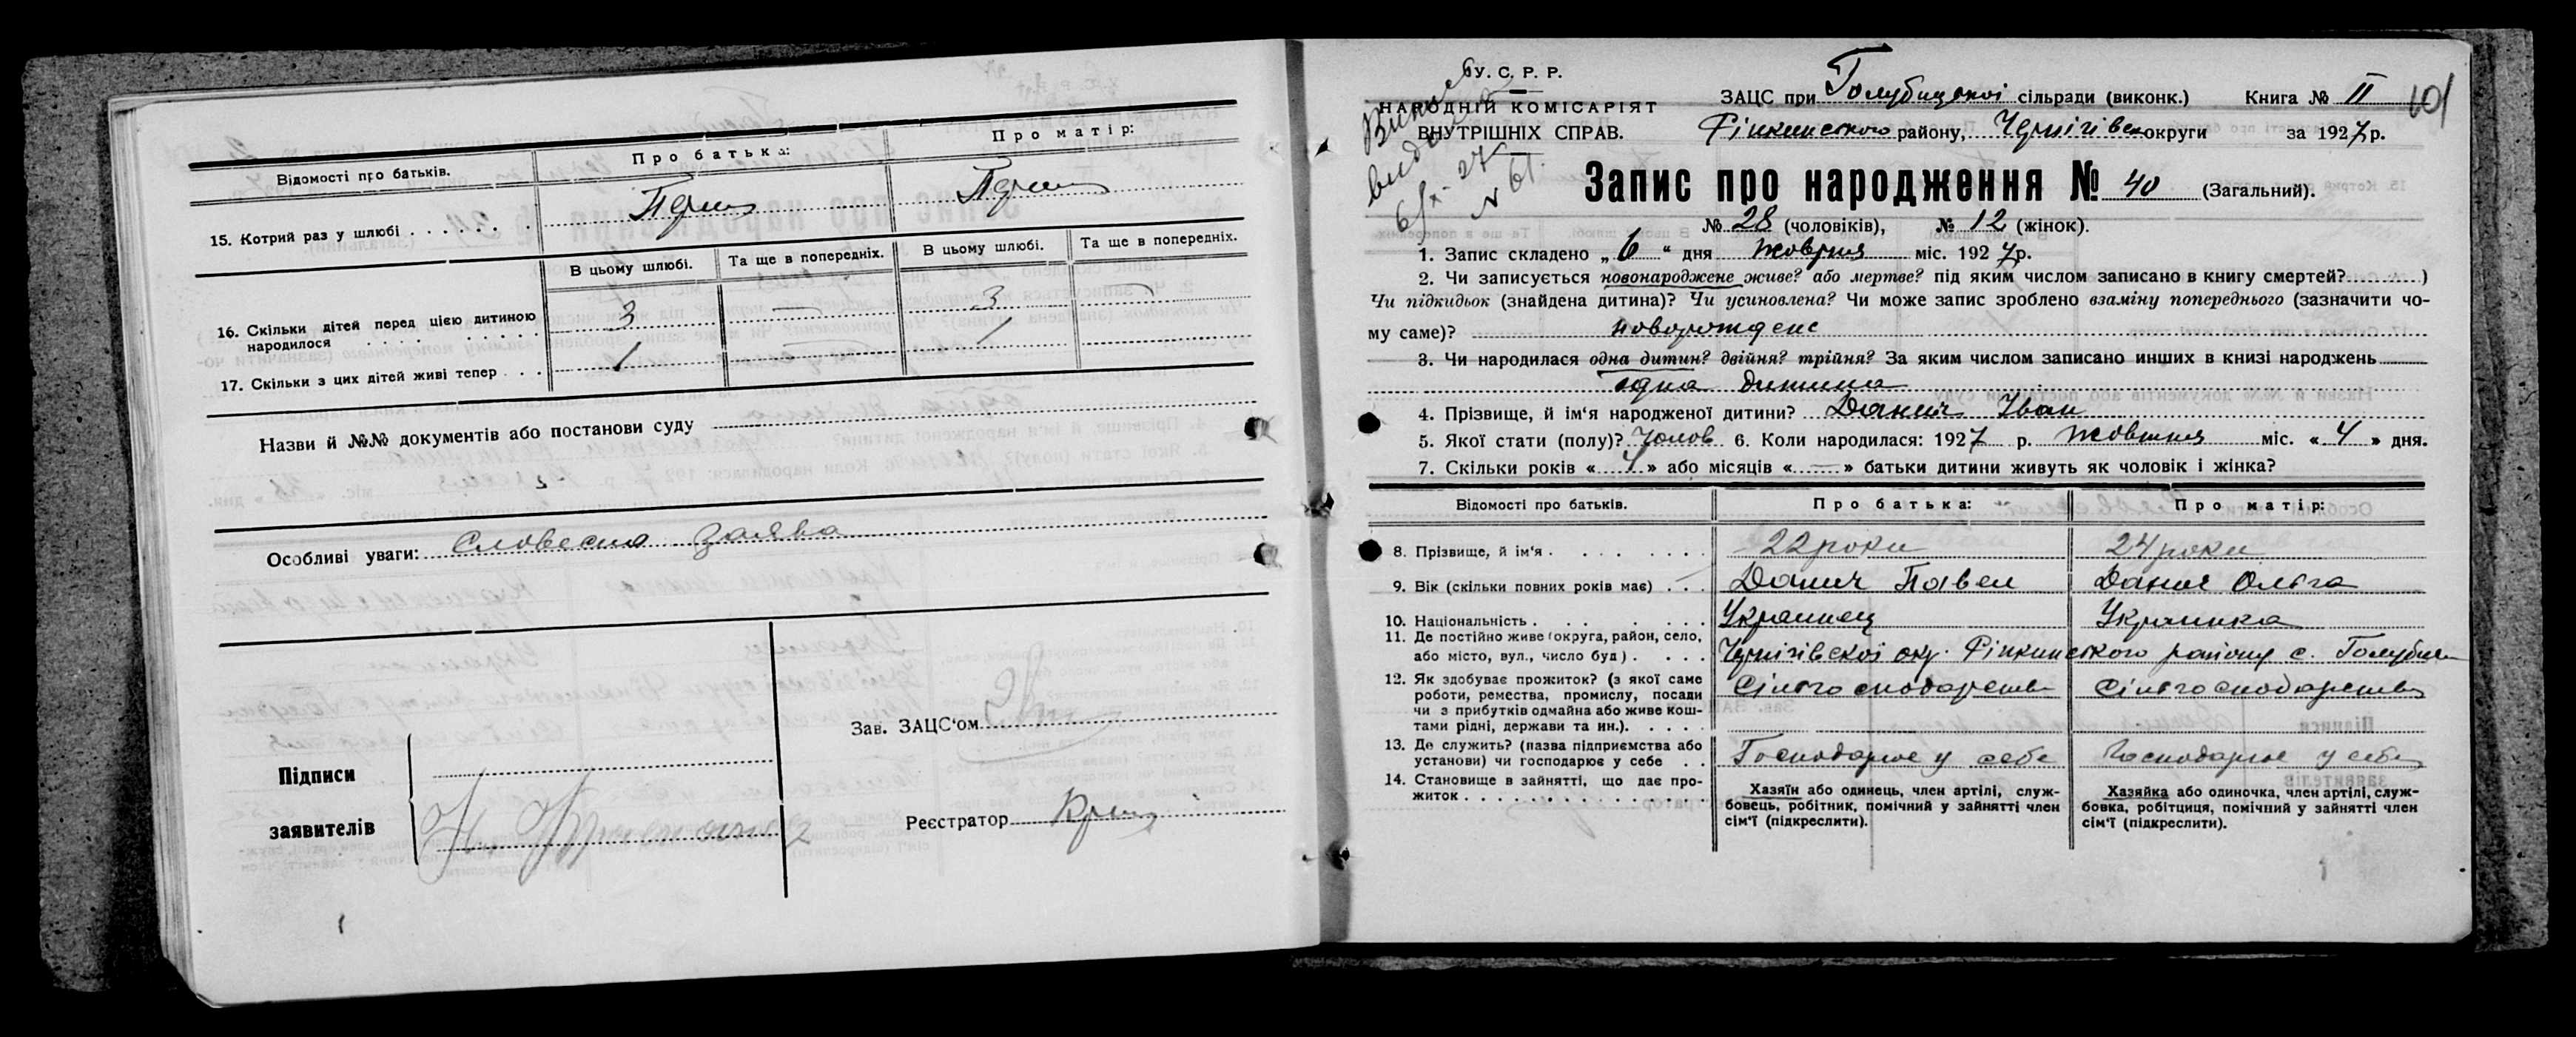 Відомості про батьків.
Про батька:
Про матір:
15. Котрий раз у шлюбі . . . . . . .
Перш
Перш
В цьому шлюбі.
Та ще в попередніх.
В цьому шлюбі.
Та ще в попередніх.
16. Скільки дітей перед цією дитиною народилося . . . . . .
3 — 3 —
17. Скільки з цих дітей живі тепер . . .
1 — 1
Назви й №№ документів або постанови суду
Особливі уваги: Словесна заява
Підписи заявителів
Зав. ЗАЦС'ом
Реєстратор
У. С. Р. Р.
НАРОДНІЙ КОМІСАРІЯТ
ВНУТРІШНІХ СПРАВ.
6/X-27
№ 61.
ЗАЦС при Голубицької сільради (виконк.) Книга № II
101
Ріпкинського району, Чернігівськ округи за 1927 р.
Запис про народження № 40 (Загальний).
№ 28 (чоловіків), № 12 (жінок).
1. Запис складено „6“ дня жовтня міс. 1927 р.
2. Чи записується новонароджене живе? або мертве? під яким числом записано в книгу смертей?........)
Чи підкидьок (знайдена дитина)? Чи усиновлена? Чи може запис зроблено взаміну попереднього (зазначити чо-
му саме)? новорожденс
3. Чи народилася одна дитин? двійня? трійня? За яким числом записано инших в книзі народжень
одна дитина
4. Прізвище, й ім'я народженої дитини? Данич Іван
5. Якої стати (полу)? Чолов 6. Коли народилася: 1927 р. жовтня міс. « 4 » дня.
7. Скільки років « 4 » або місяців « — » батьки дитини живуть як чоловік і жінка?
Відомості про батьків.
Про батька:
Про матір:
8. Прізвище, й ім'я . . . . . . . .
22 роки
24 роки
9. Вік (скільки повних років має) . . .
Данич Павел
Данич Ольга
10. Національність . . . . . . .
Украинец
Украинка
11. Де постійно живе (округа, район, село,
або місто, вул., число буд) . . . .
Чернігівскої окр. Ріпкинського району с. Голубичі
12. Як здобуває прожиток? (з якої саме
роботи, ремества, промислу, посади
чи з прибутків одмайна або живе кош-
тами рідні, держави та ин.). . . . .
Сільгосподарство
Сільгосподарство
13. Де служить? (назва підприємства або
установи) чи господарює у себе . .
Господарює у себе
Господарює у себе
14. Становище в зайнятті, що дає про-
житок . . . . . . . . . . . . . . .
Хазяїн або одинець, член артілі, служ-
бовець, робітник, помічний у зайнятті член
сім'ї (підкреслити).
Хазяйка або одиночка, член артілі, служ-
бовка, робітциця, помічний у зайнятті член
сім'ї (підкреслити).